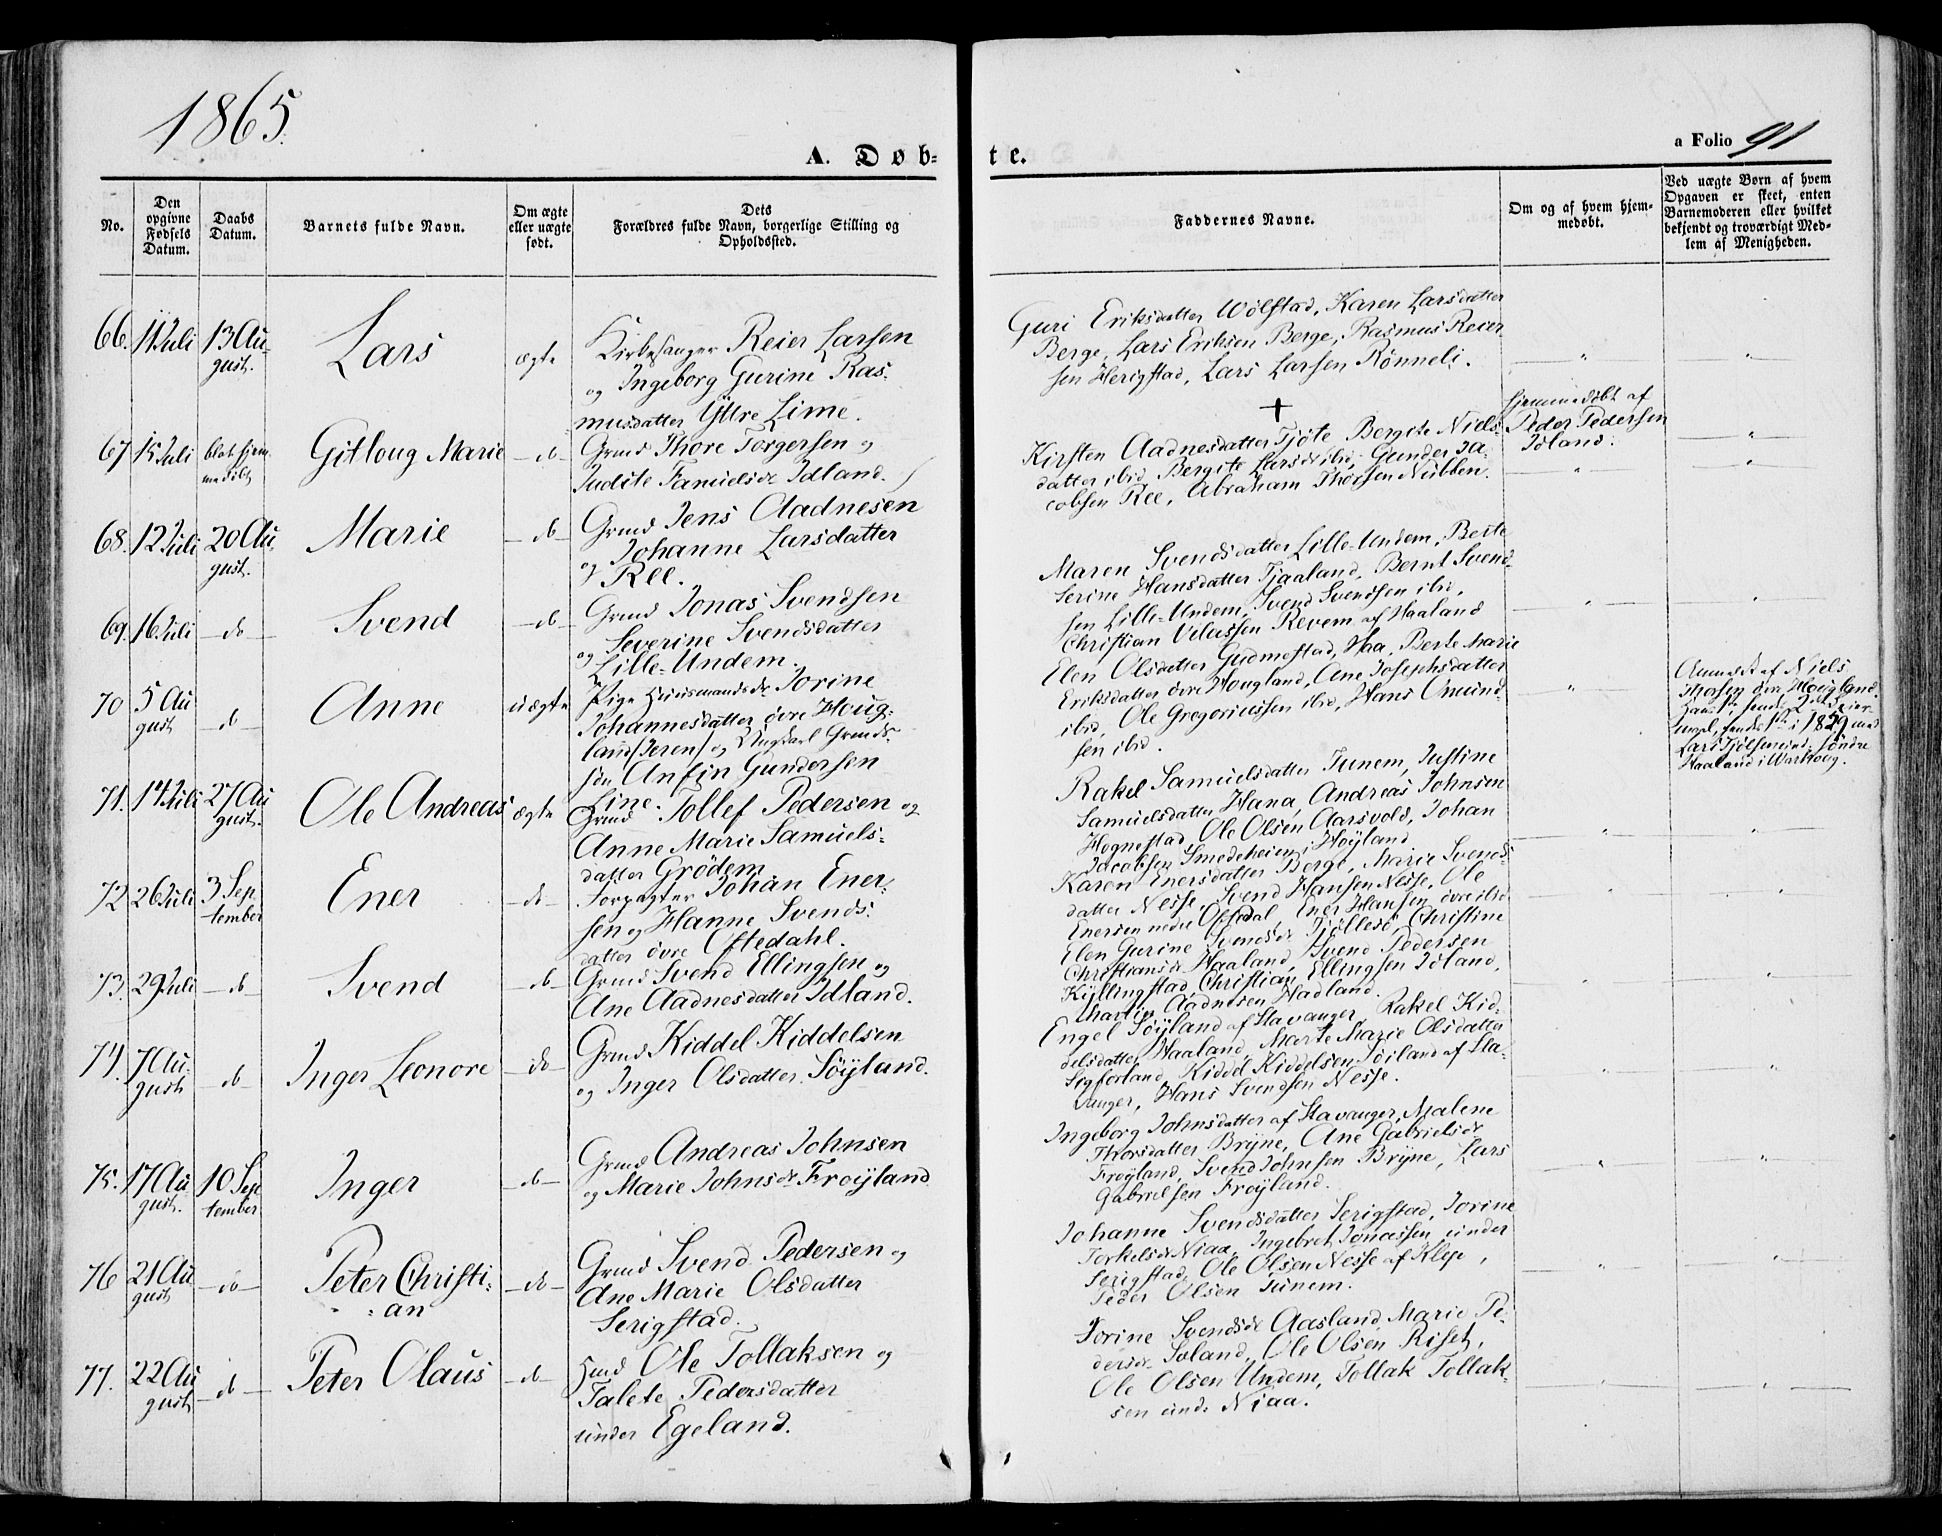 1865.
A. Døb-
te.
a Folio 91
No.
Den opgivne Fødsels Datum.
Daabs Datum.
Barnets fulde Navn.
Om ægte eller uægte født.
Dets Forældres fulde Navn, borgerlige Stilling og Opholdssted.
Faddernes Navne.
Om og af hvem hjemmedøbt.
Ved uægte Børn af hvem Opgaven er skeet, enten Barnemoderen eller hvilket bekjendt og troværdigt Medlem af Menigheden.
66. 11 Juli 13 Au-
gust.
Lars
ægte
Kirkesanger Reier Larsen
og Ingeborg Gurine Ras-
musdatter Yttre Lime.
Guri Eriksdatter Wølstad, Karen Larsdatter
Berge, Lars Eriksen Berge, Rasmus Reier-
sen Herigstad, Lars Larsen Rønneli.
67 15 Juli blot hjem-
medøbt
Gitloug Marie
do
Grmd Thore Torgersen og
Judite Famuelsdr Idland.
Kirsten Aadnesdatter Tjøte, Bergite Niels-
datter ibid, Bergite Larsdr ibid, Gunder Ja-
cobsen Ree, Abraham Thorsen Nübben.
Hjemmedøbt af
Peder Pedersen
Idland.
68. 12 Juli 20 Au-
gust.
Marie
do
Grmd Jens Aadnesen
og Johanne Larsdatter
Ree.
69. 16 Juli do
Svend
do
Grmd Jonas Svendsen
og Severine Svendsdatter
Lille-Undem.
Maren Svendsdatter Lille-Undem, Berte
Serine Hansdatter Tjaaland, Bernt Svend-
sen Lille-Undem, Svend Svendsen ibid,
Christian Velassen Revem af Haaland
70 5 Au
gust do
Anne
uægte
Pige Huusmandsdr Jorine
Johannesdatter øvre Houg-
land (Jeren) og Ungkarl Grmds-
søn Anfin Gundersen
Line.
Elen Olsdatter Gudmestad, Haa, Berte Marie
Eriksdatter øvre Hougland, Ane Josephsdatter
ibid, Ole Gregoriussen ibid, Hans Omund-
sen ibid.
Anmeldt af Niels
Thorsen øvre Hougland.
Lars Tjølsen ind. søndre
Haaland i Warhoug.
71. 14 Juli 27 Au
gust.
Ole Andreas
ægte
Grmd Tollef Pedersen og
Anne Marie Samuels-
datter Grødem
Rakel Samuelsdatter Tunem, Justine
Samuelsdatter Hana, Andreas Johnsen
Hognestad, Ole Olsen Aarsvold, Johan
Jacobsen Smedeheien i Høyland
72 26 Juli 3 Sep
tember
Ener
do
Forpagter Johan Ener-
sen og Hanne Svends-
datter øvre Oftedahl.
Karen Enersdatter Berge, Marie Svends-
datter Nesse, Svend Hansen Nesse, Ole
Enersen nedre Oftedal, Ener Hansen øvre ibid
73. 29 Juli do
Svend
do
Grmd Svend Ellingsen og
Ane Aadnesdatter Idland.
Elen Gurine Svendsdr Tjøllesø, Christine
Christiansdr Haaland, Svend Pedersen
Kyllingstad, Christian Ellingsen Idland,
Martin Aadnesen Hadland.
74. 7 Au-
gust do
Inger Leonore
do
Grmd Kiddel Kiddelsen
og Inger Olsdatter Søyland.
Engel Søyland af Stavanger, Rakel Kid-
delsdatter Haaland, Marte Marie Olsdatter
Sigforland, Kiddel Kiddelsen Søiland af Sta-
vanger, Hans Svendsen Nesse.
75. 17 Au
gust. 10 Sep
tember
Inger
do
Grmd Andreas Johnsen
og Marie Johnsdr Frøyland.
Ingeborg Johnsdatter af Stavanger, Malene
Thorsdatter Bryne, Ane Gabrielsdr
Frøyland, Svend Johnsen Bryne, Lars
Gabrielsen Frøyland.
76 21 Au
gust do
Peter Christi-
an
do
Grmd Svend Pedersen og
Ane Marie Olsdatter
Serigstad.
Johanne Svendsdatter Serigstad, Jorine
Torkelsdr Niaa, Ingebret Jonassen under
Serigstad, Ole Olsen Nesse af Klep,
Peder Olsen Tunem.
77. 22 Au
gust do
Peter Olaus
do
Hmd Ole Tollaksen og
Talete Pedersdatter
under Egeland.
Jorine Svendsdr Aasland, Marie Pe-
dersdr Soland, Ole Olsen Riset,
Ole Olsen Undem, Tollak Tollak-
sen unde Niaa.